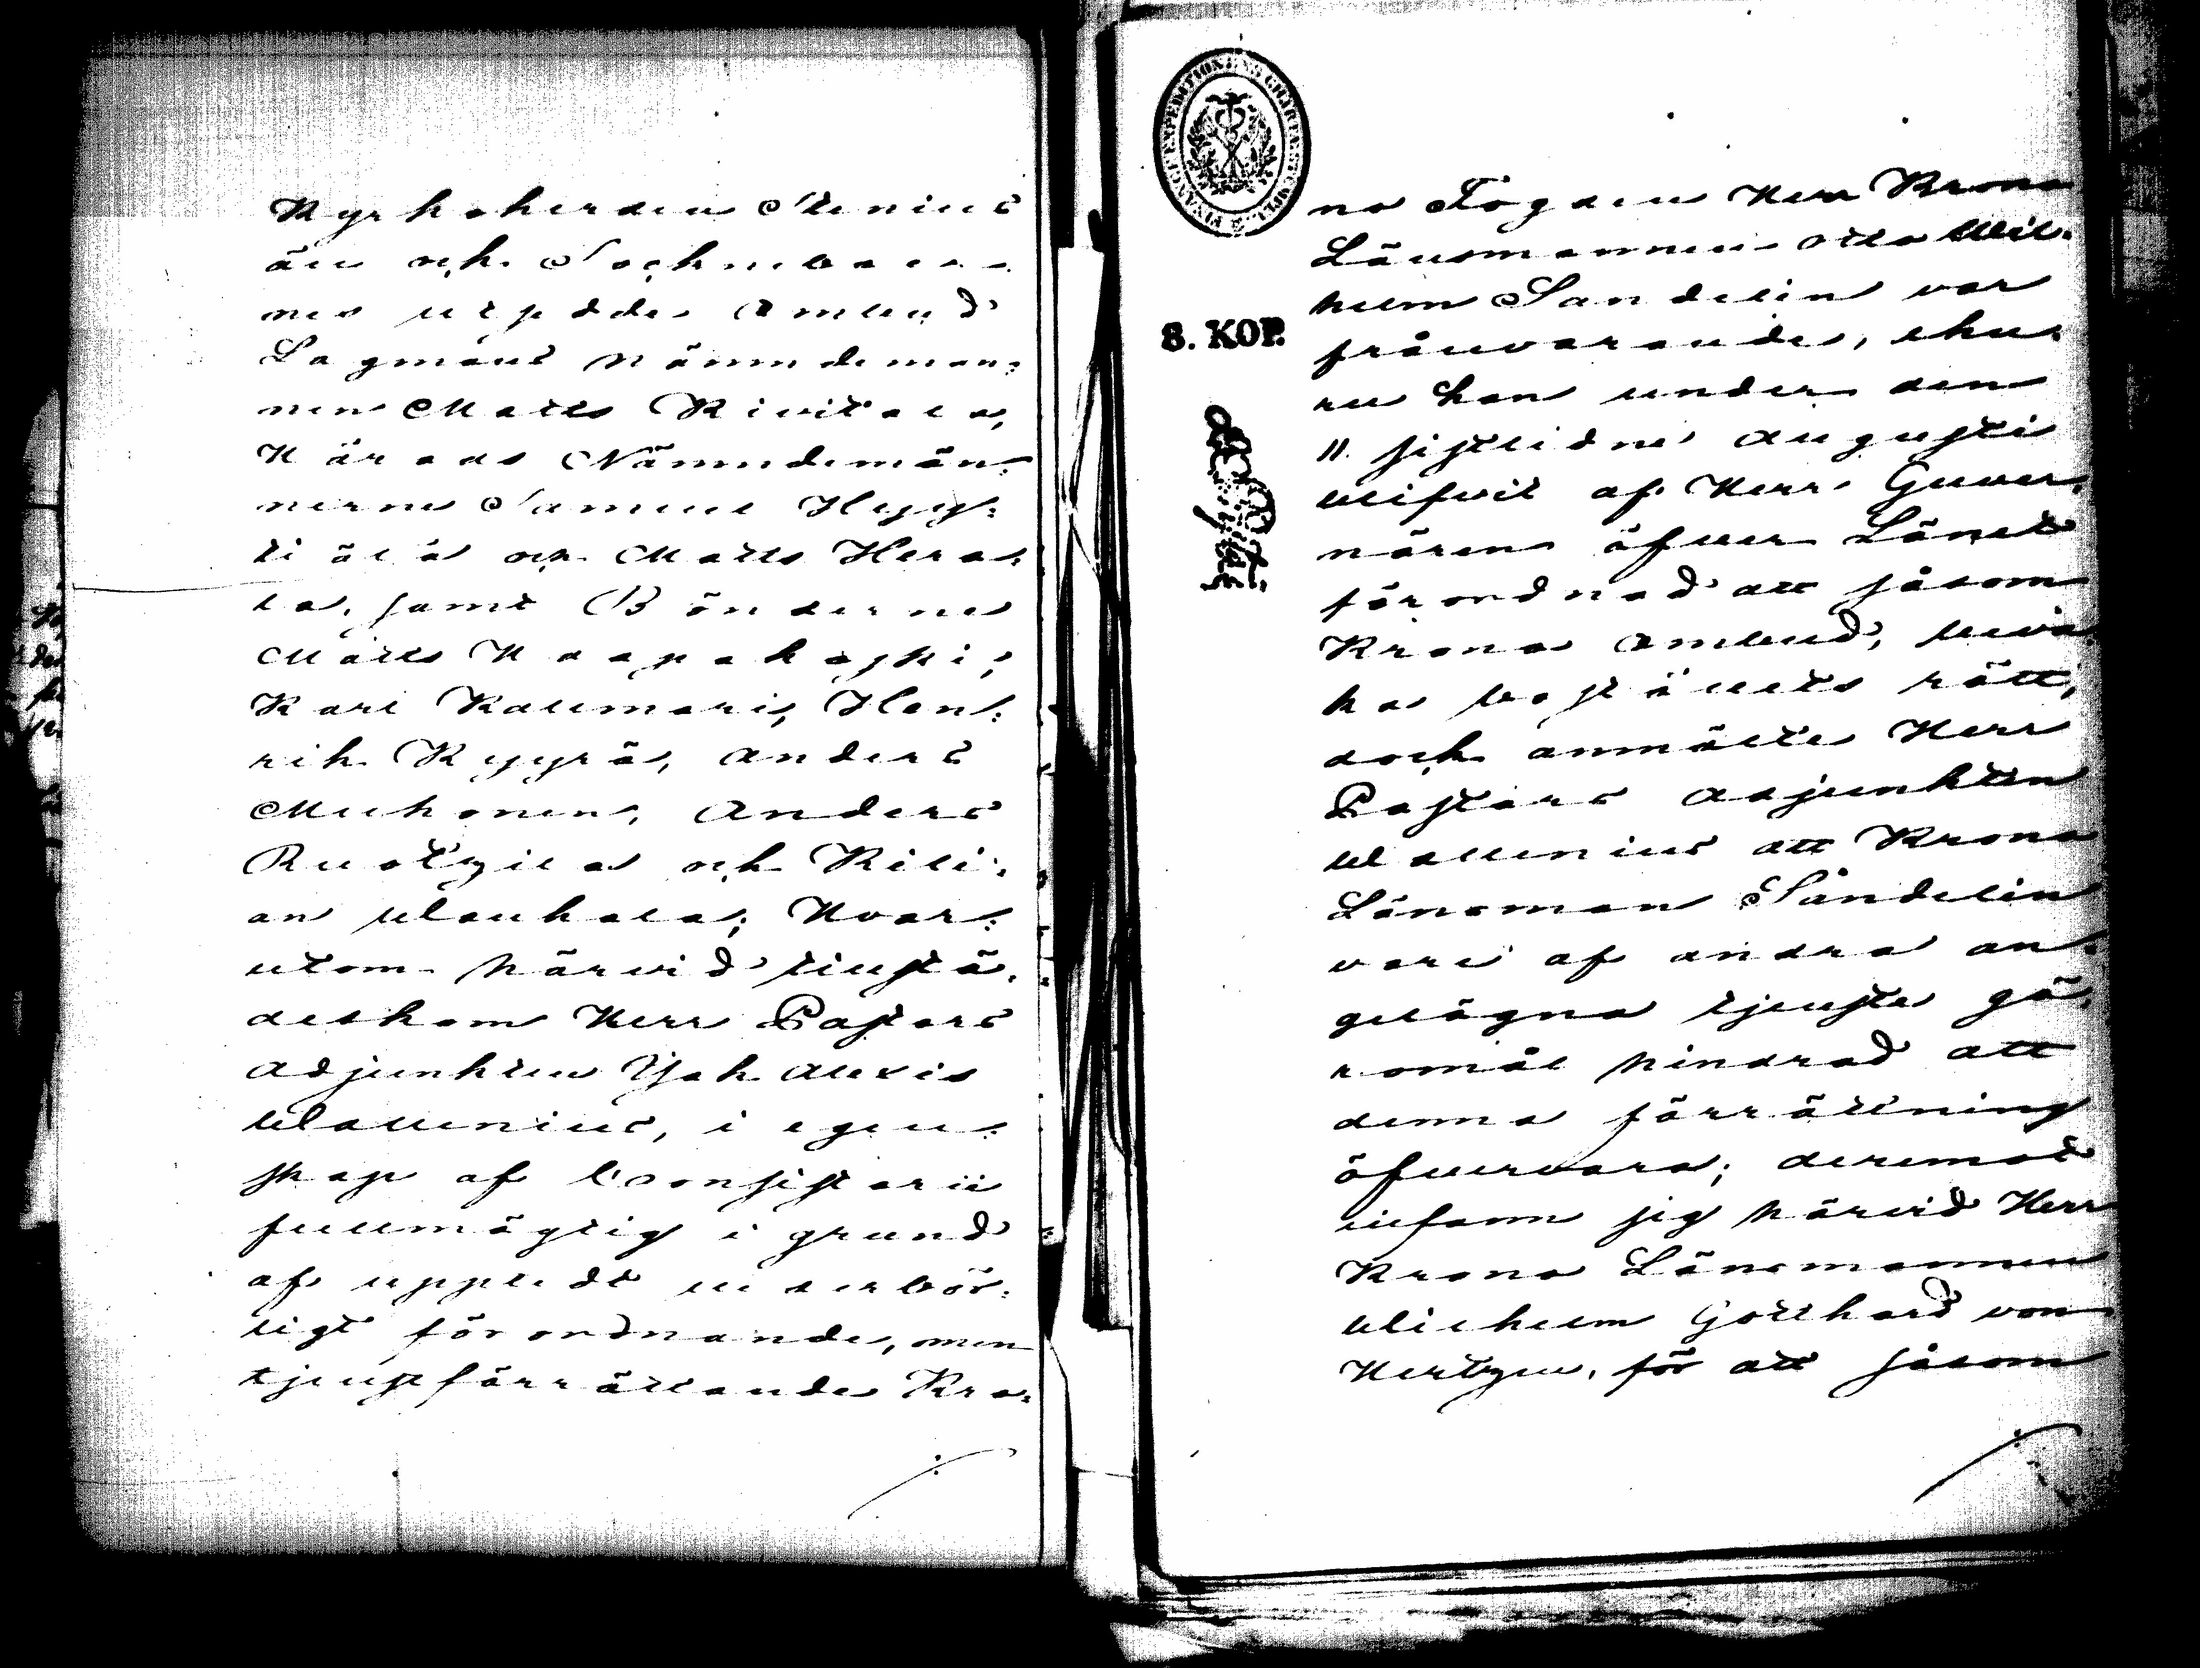 Kyrkoherden Stenius
än och Sockneboer-
nes utsedde Ombud
Lagmans Nämndeman-
nen Matts Kivitalo,
Härads Nämndemän-
nerne Samuel Hegg-
tiälä och Matts Hera-
la, samt Bönderne
Matts Haapakoski,
Karl Kallmari, Hen-
rik Kyyrä, Anders
Muhonen, Anders
Ruotzila och Kili-
an Waukala; Hvar-
utom härvid tillstä-
deskom Herr Pastors
Adjunkten Isak Alexis
Wallenius, i egen-
skap af Consistorii
fullmägtig i grund
af uppledt vederbör-
ligt förordnande, men
tjenstförrättande Kro-
FINANCE EXPEDITIONENS CHARTÆ
8. KOP.
no Fogden Herr Krono
Länsmannen Otto Wil-
helm Sandelin var
frånvarande, ehu-
ru han under den
11 sistlidne Augusti
blifvit af Herr Guver-
nören öfver Länet
förordnad att såsom
Krono Ombud, beva-
ka boställets rätt,
dock anmälte Herr
Pastors Adjunkten
Wallenius att Krono
Länsman Sandelin
vore af andra an-
gelägna tjenste gö-
romål hindrad att
denna förrättning
öfvervara; deremot
infann sig härvid Herr
Krono Länsmannen
Wilhelm Gotthard von
Hertzen, för att såsom